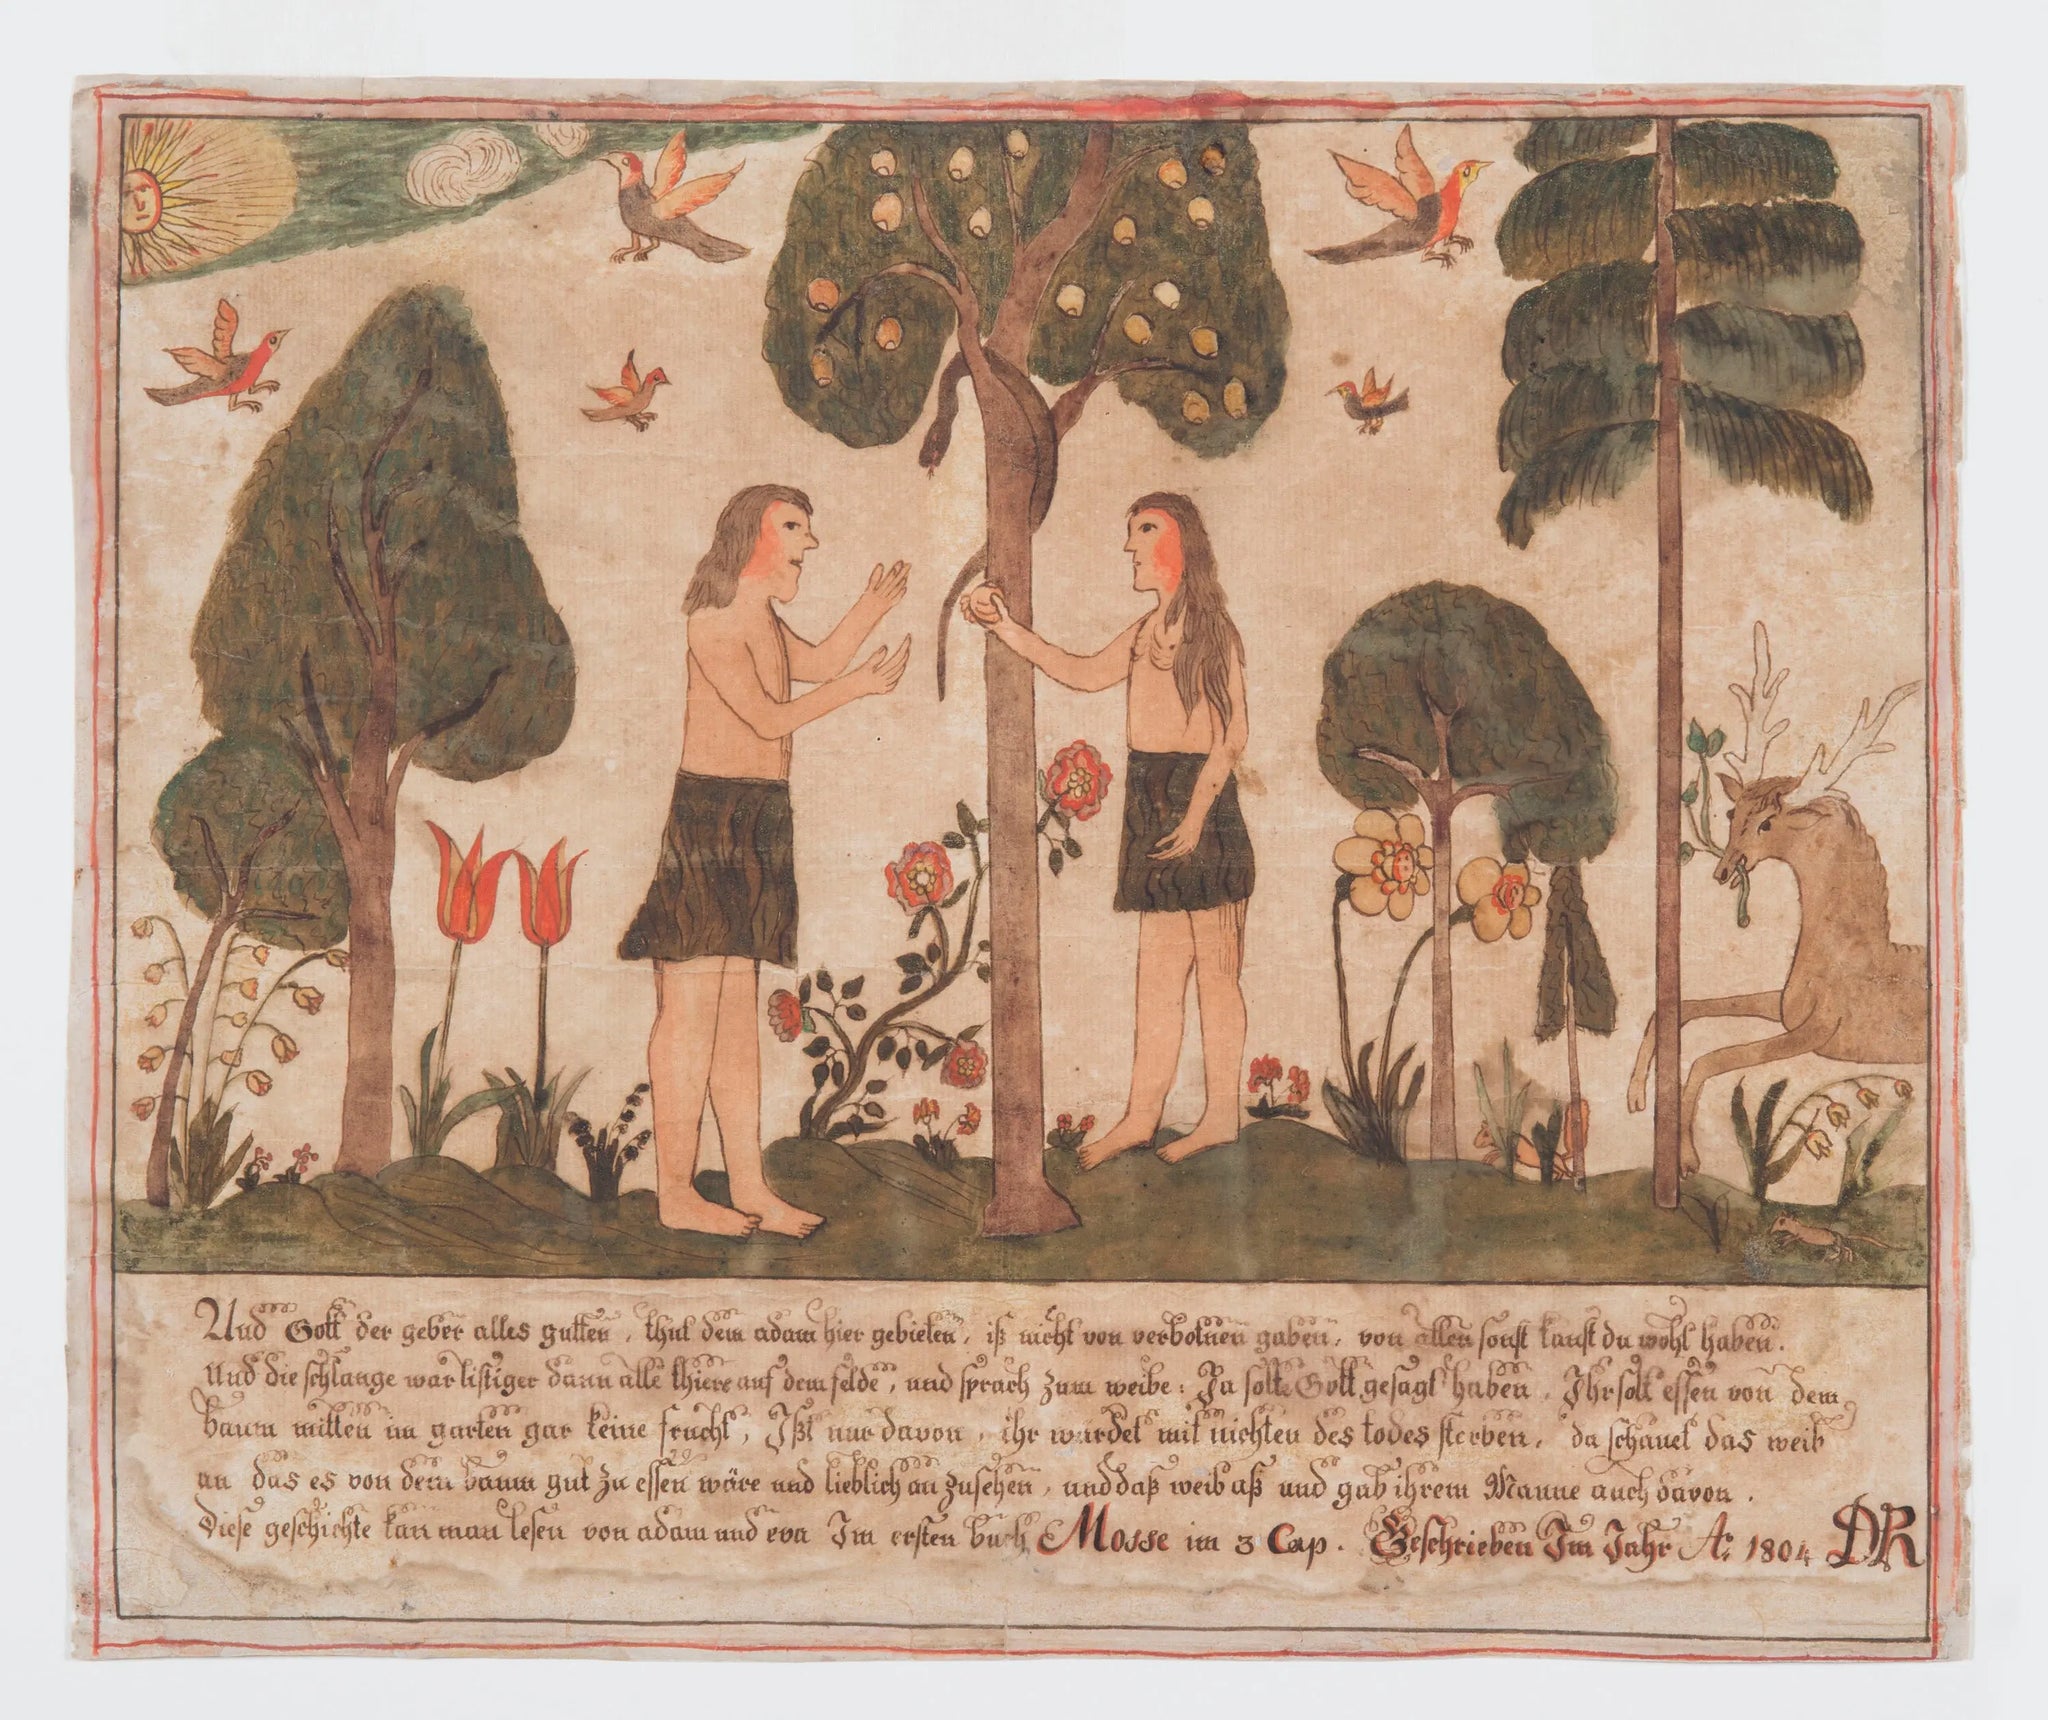 Und Gott der geber alles gutten, thut dem adam hier gebieten, iß nicht von verbotnen gaben, von allen sonst kanst du wohl haben.
Und die schlange war listiger dann alle thiere auf dem felde, und sprach zum weibe: Ja solte Gott gesagt haben, Ihr solt essen von dem
baum mitten im garten gar keine frucht, Ißt nur davon, ihr würdet mit nichten des todes sterben, da schauet das weib
an das es von dem baum gut zu essen wäre und lieblich an zusehen, und daß weib aß und gab ihrem Manne auch davon.
Diese geschichte kan man lesen von adam und eva Im ersten buch Mosse im 3 Cap. Geschrieben Im Jahr A: 1804 DR